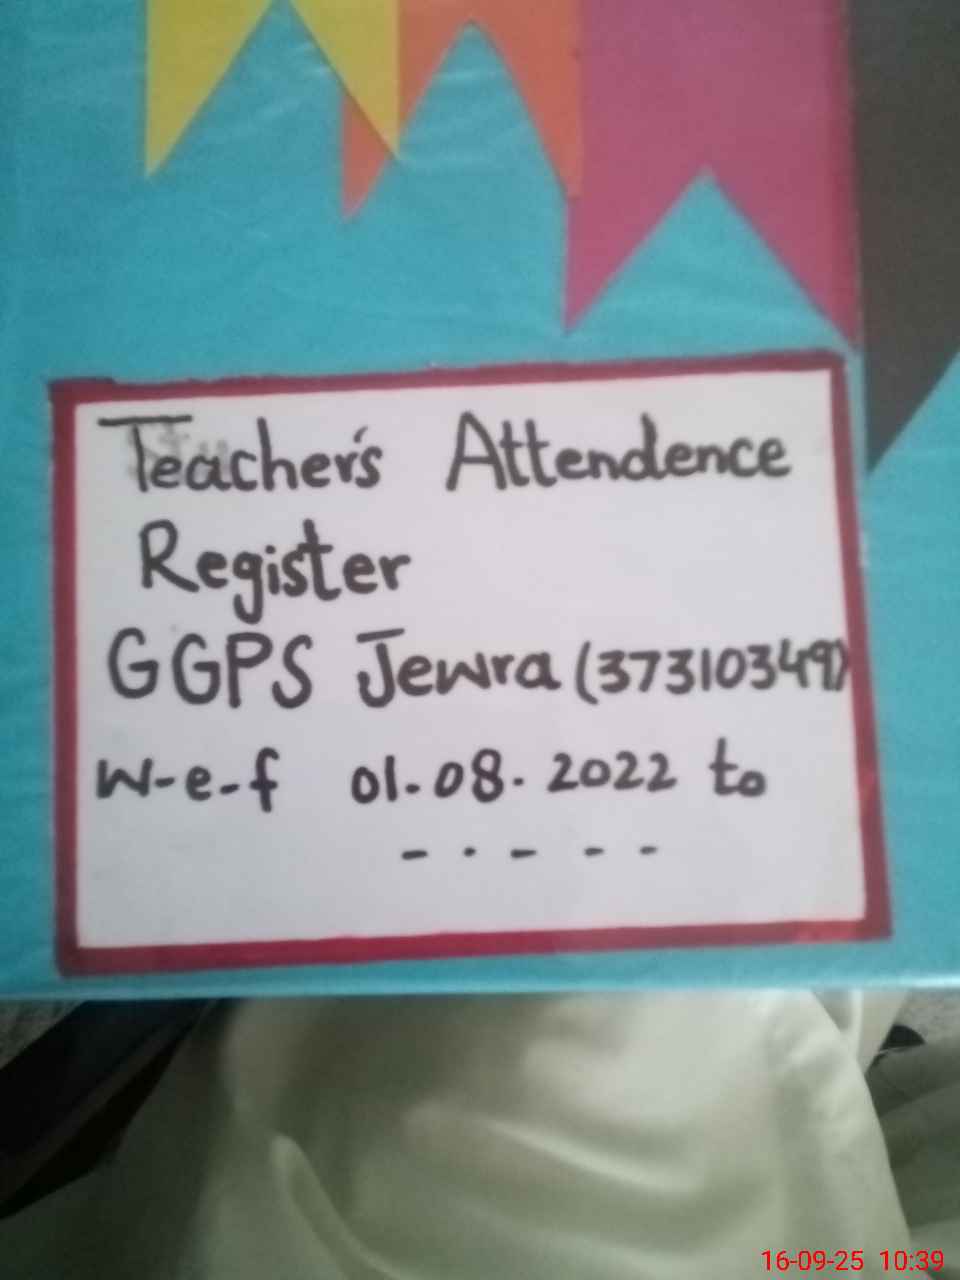 Teacher's Attendence
Register
GGPS Jewra (37310349)
w-e-f 01-08-2022 to
- . - - -
16-09-25 10:39